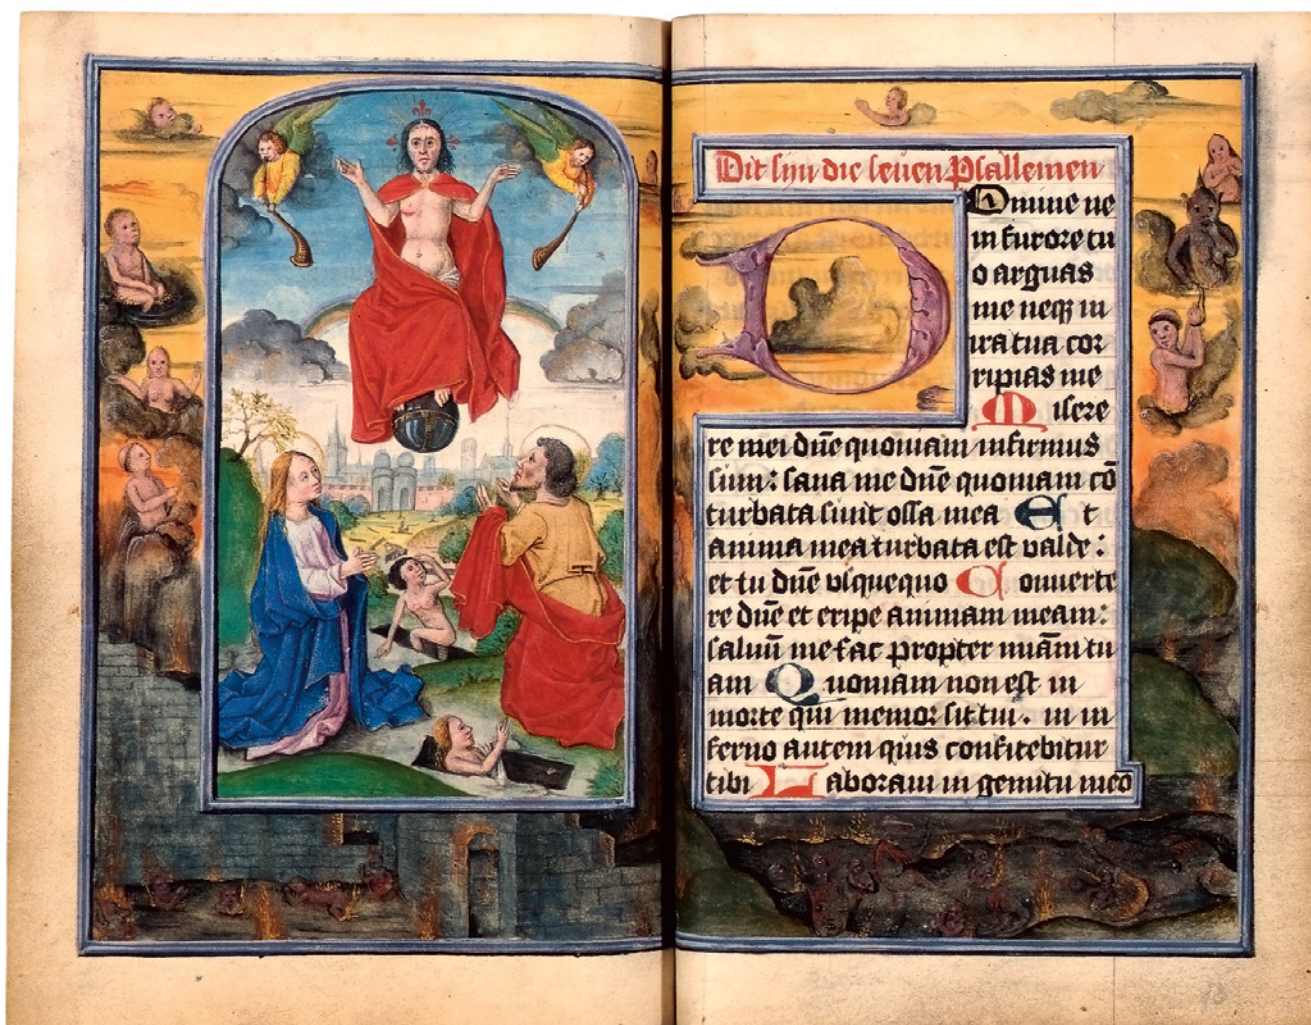 Dit sijn die seuen Psallemen
Domine ne
in furore tu
o arguas
me neqꝫ in
ira tua cor
ripias me
Misere
re mei dn̄e quoniam infirmus
sum: sana me dn̄e quoniam cō
turbata sunt ossa mea Et
anima mea turbata est valde:
et tu dn̄e vsquequo Conuerte
re dn̄e et eripe animam meam:
saluū me fac propter miām tu
am Quoniam non est in
morte qui memor sit tui. in in
ferno autem quis confitebitur
tibi Laboraui in gemitu meo